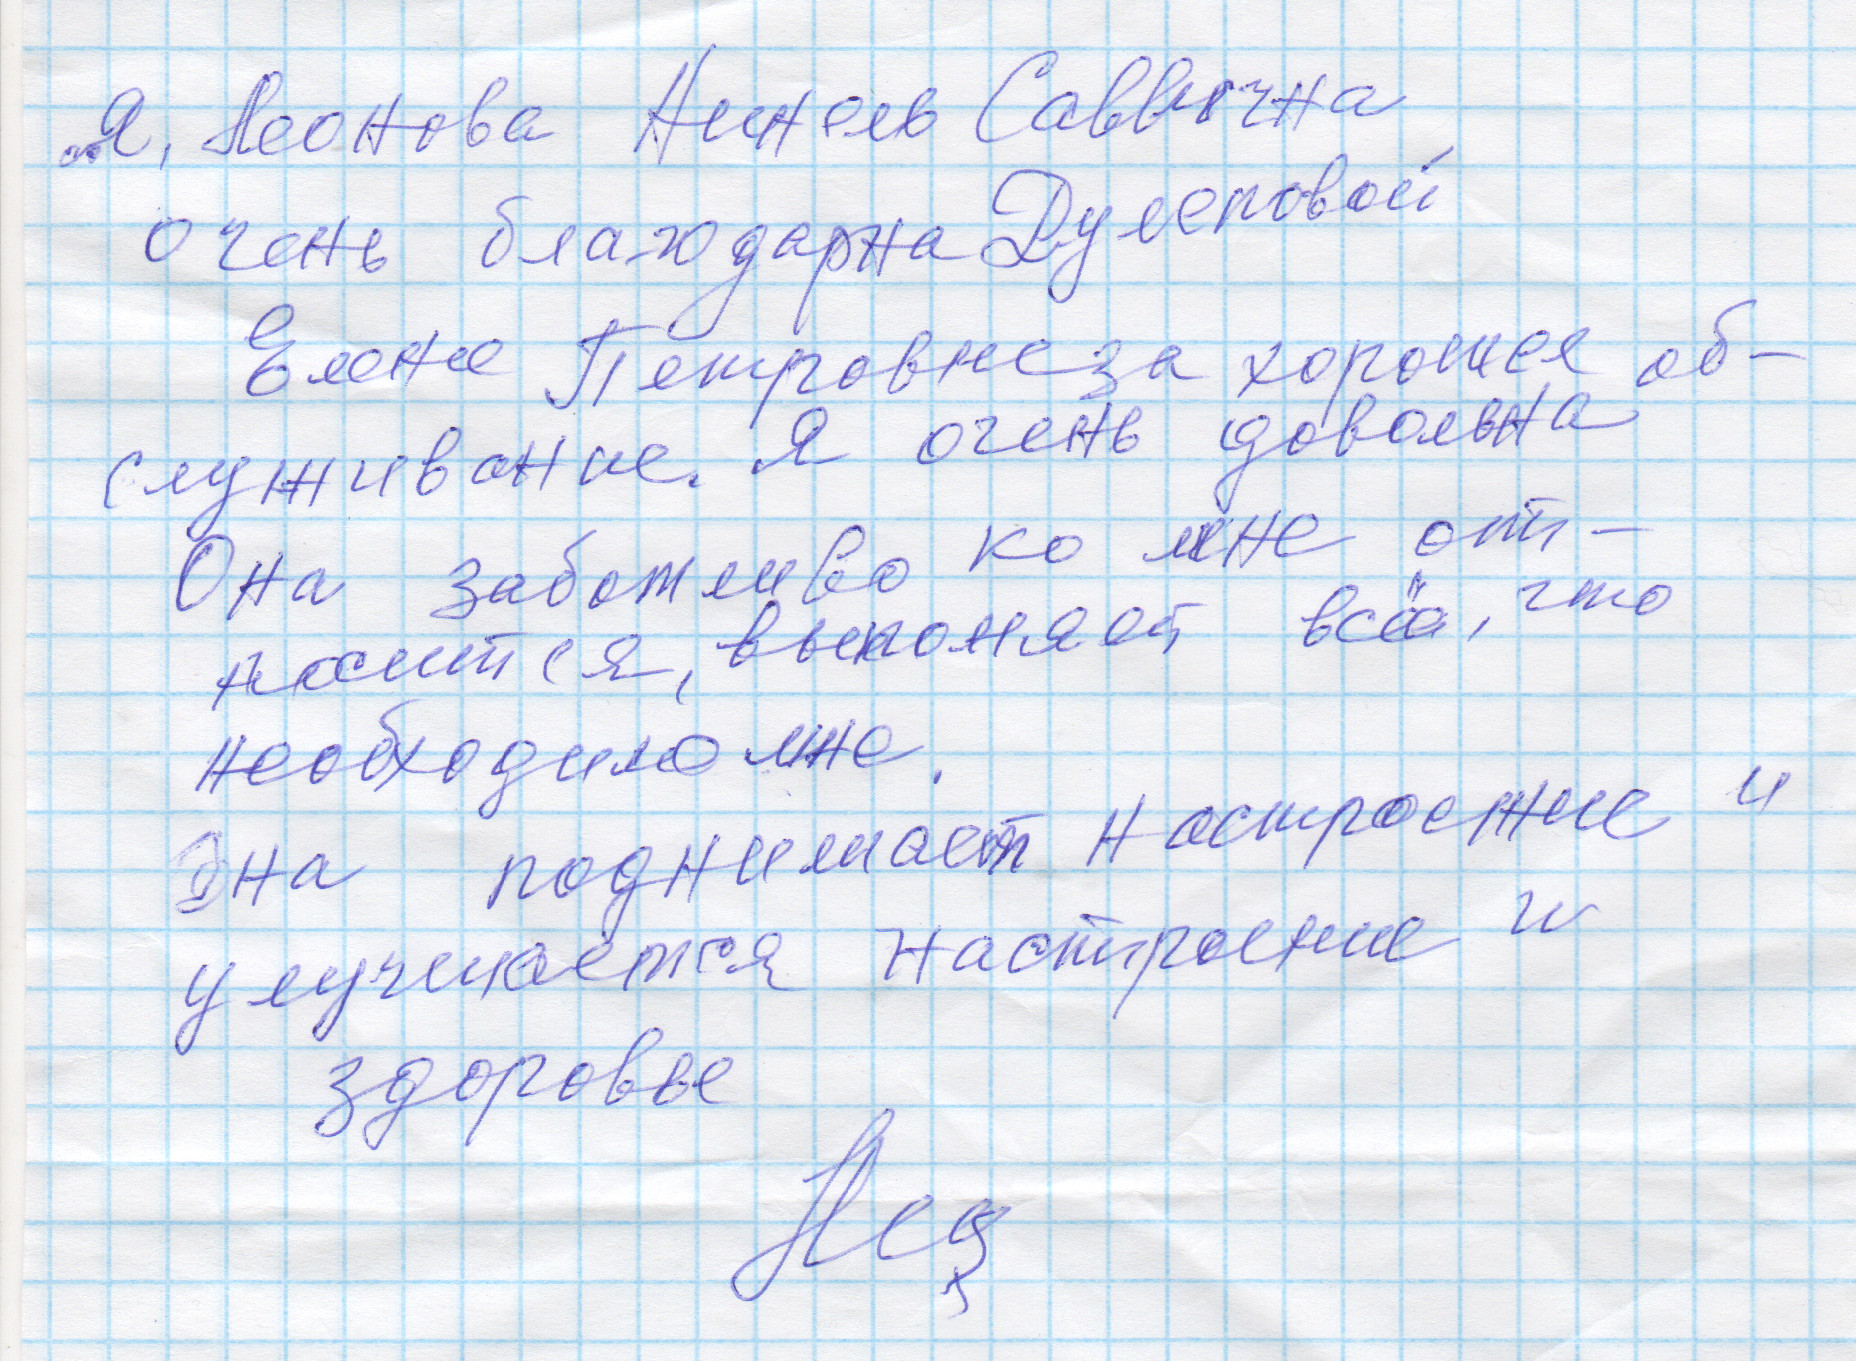 Я, Леонова Нинель Саввична
очень благодарна Дулеповой
Елене Петровне за хорошее об-
служивание. Я очень довольна
Она заботливо ко мне от-
носится, выпоняет всё, что
необходимо мне.
Она поднимает настроение и
улучшается настроение и
здоровье